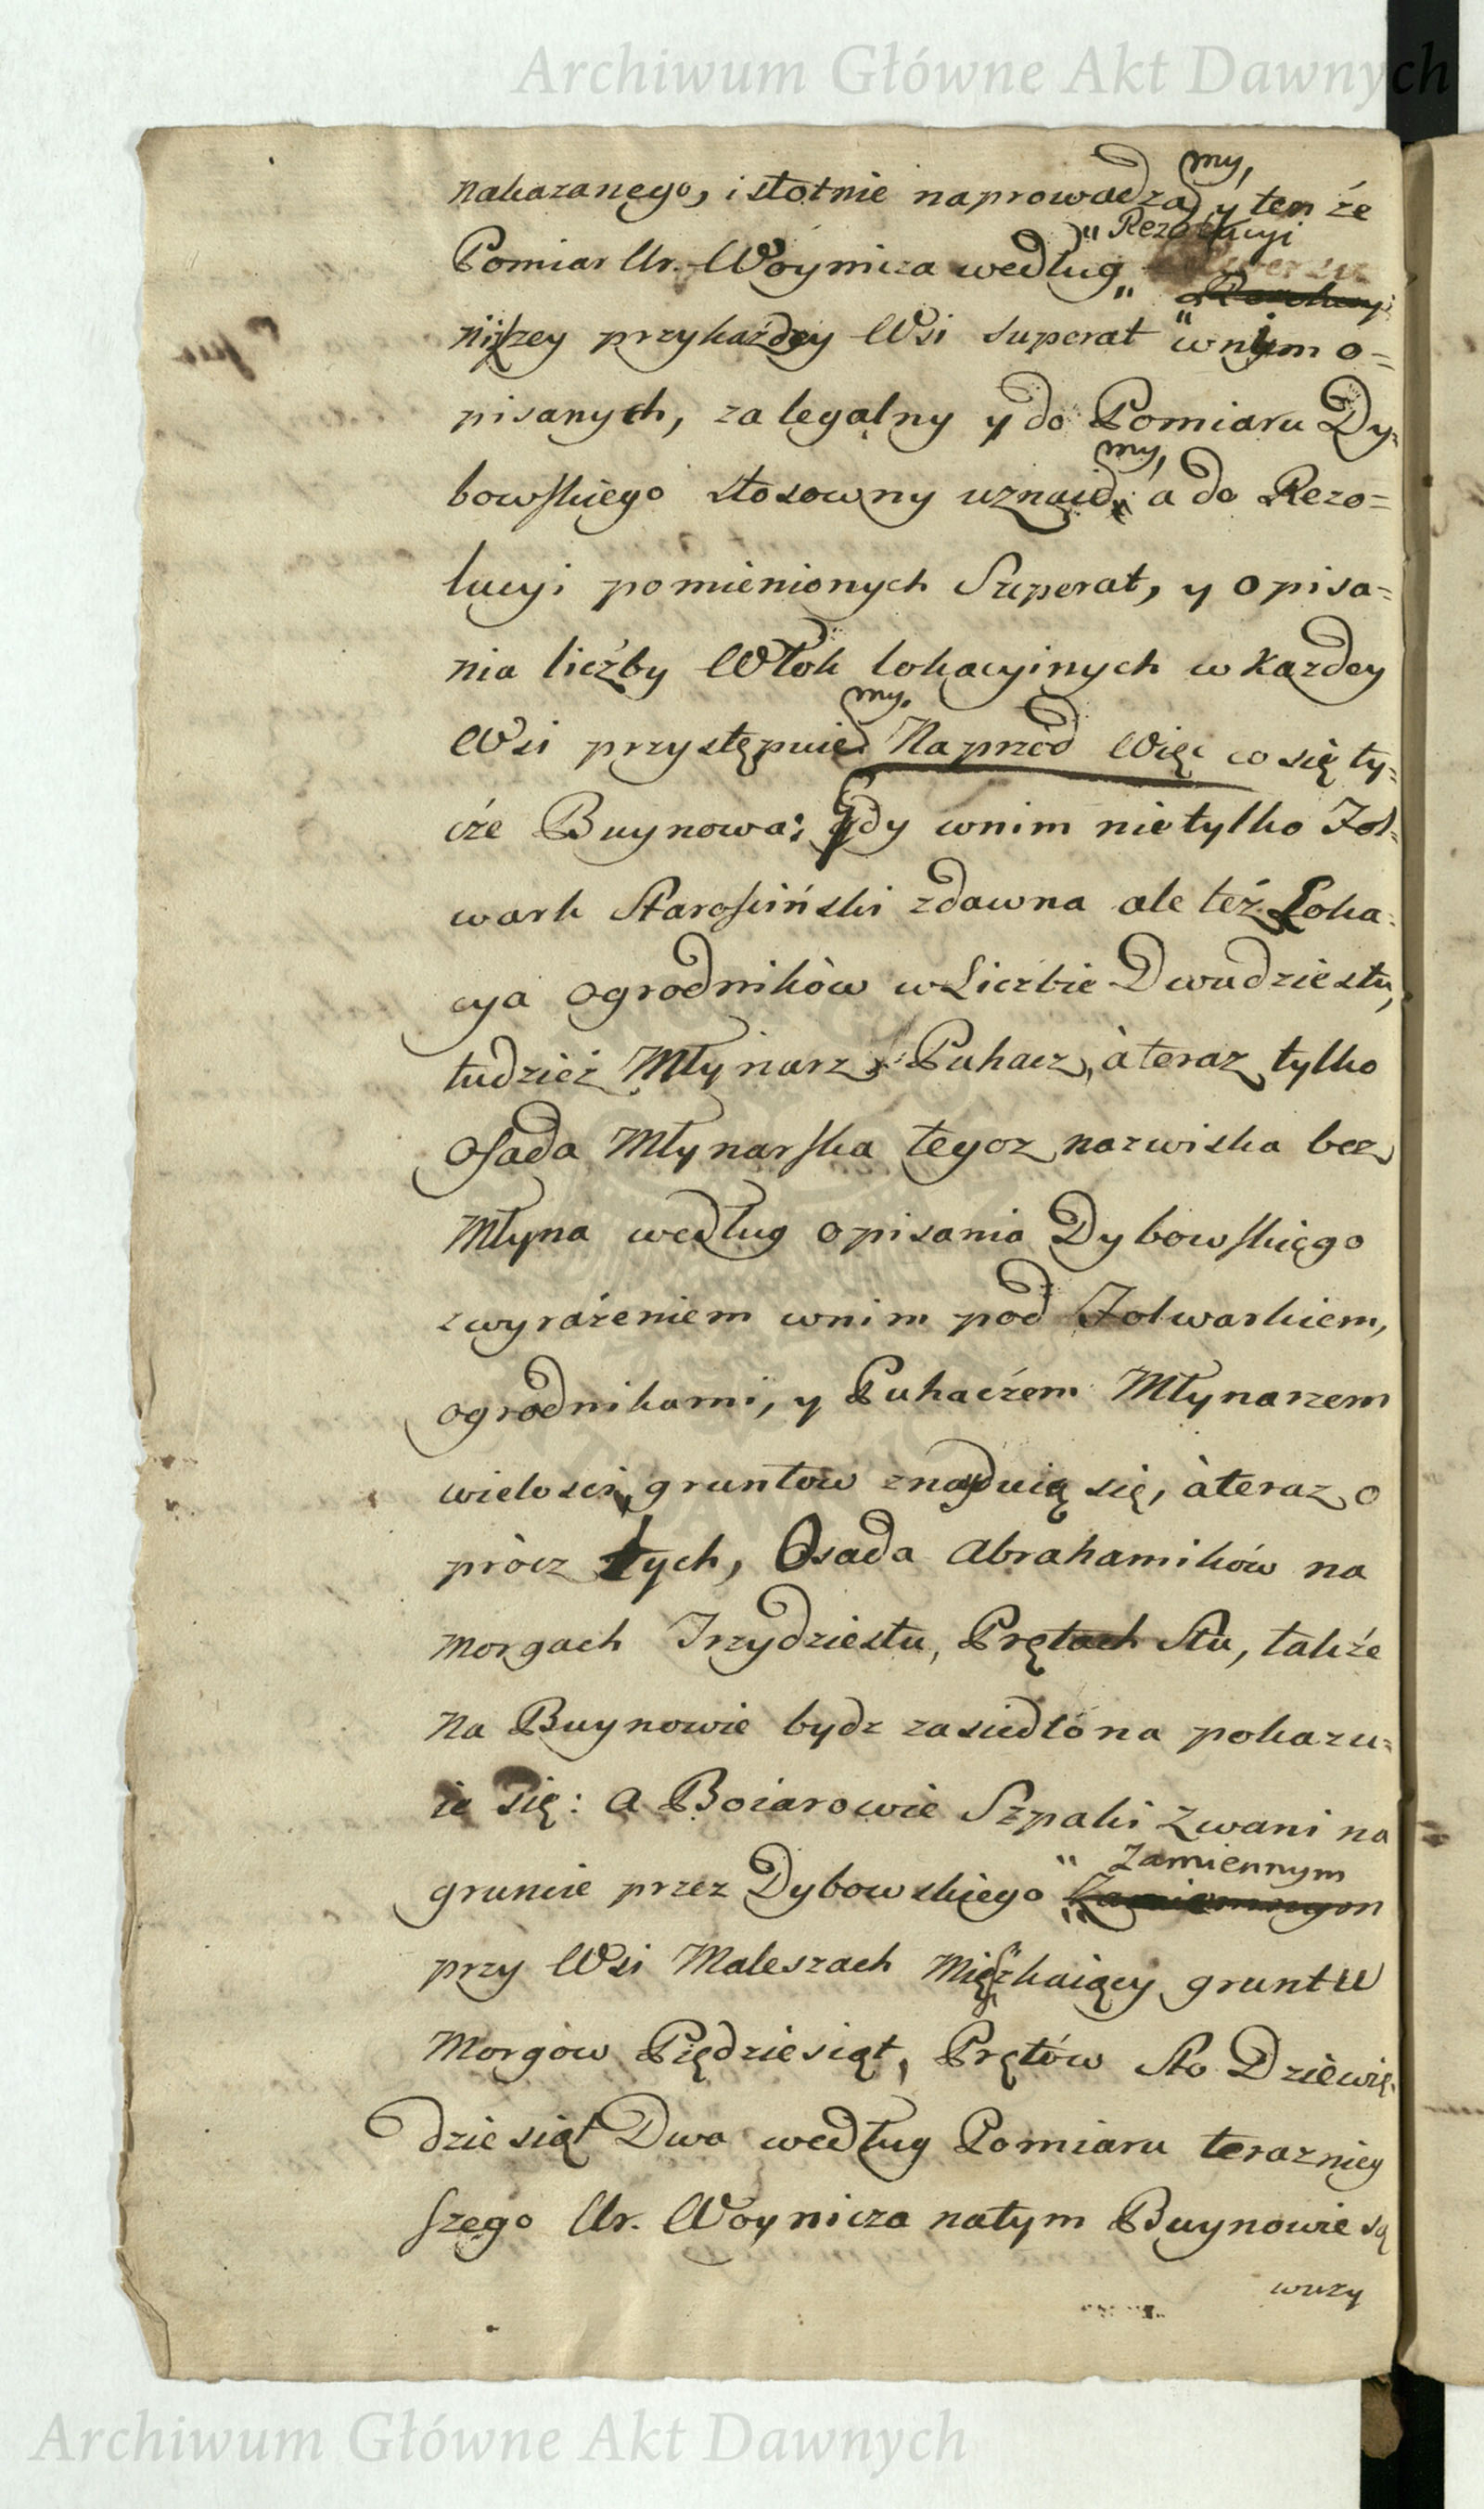 Archiwum Główne Akt Dawnych
my,
nakazanego, istotnie naprowadza y ten źe
" Rezolucyi
Pomiar Ur. Woynicza według
niższey przykaźdey Wsi superat wnim o=
pisanych, za legalny y do Pomiaru Dy=
my,
bowskiego stosowny uznaie, a do Rezo=
lucyi pomienionych Superat, y opisa=
nia liczby Włok lokacyinych w kazdey
my.
Wsi przystępuie. Naprzod Więc co się ty=
cźe Buynowa: gdy wnim nietylko Fol=
wark Starościński zdawna ale też Loka=
cya ogrodników w Liczbie Dwudziestu,
tudzież Młynarz Puhacz, à teraz tylko
Osada Młynarska tegoz nazwiska bez
Młyna według opisania Dybowskiego
z wyrażeniem wnim pod Folwarkiem,
ogrodnikami, y Puhacźem Młynarzem
wielości gruntow znayduią się, à teraz o
pròcz tych, Osada Abrahamików na
morgach Trzydziestu, Prętach Stu, takźe
na Buynowie bydz zasiedlóna pokazu=
ie się: a Boiarowie Szpaki Zwani na
" Zamiennym
gruncie przez Dybowskiego Zamiennym
przy Wsi Maleszach Mięszkaiący gruntu
Morgow Piędziesiąt, Prętów Sto Dziewię=
dziesiąt Dwa według Pomiaru terazniey
szego Ur. Woynicza natym Buynowie są
wuzy
Archiwum Główne Akt Dawnych